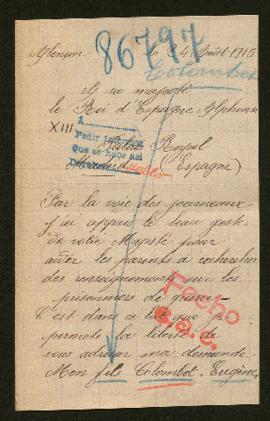 86797
le 24 Août 1915
Colombot
A sa majesté
le Roi d'Espagne Alphonse
XIII
Palais Royal
Madrid (Espagne)
1
Pedir informes
que se hace así
Hecho
Par la voie des journeaux
j'ai appris le beau geste
de votre Majesté pour
aider les parents à rechercher
des renseignements sur les
prisonniers de guerre.
C'est dans ce but que je
permets la liberté de
vous adresser ma demande.
Mon fils Colombot, Eugène,
Hecho